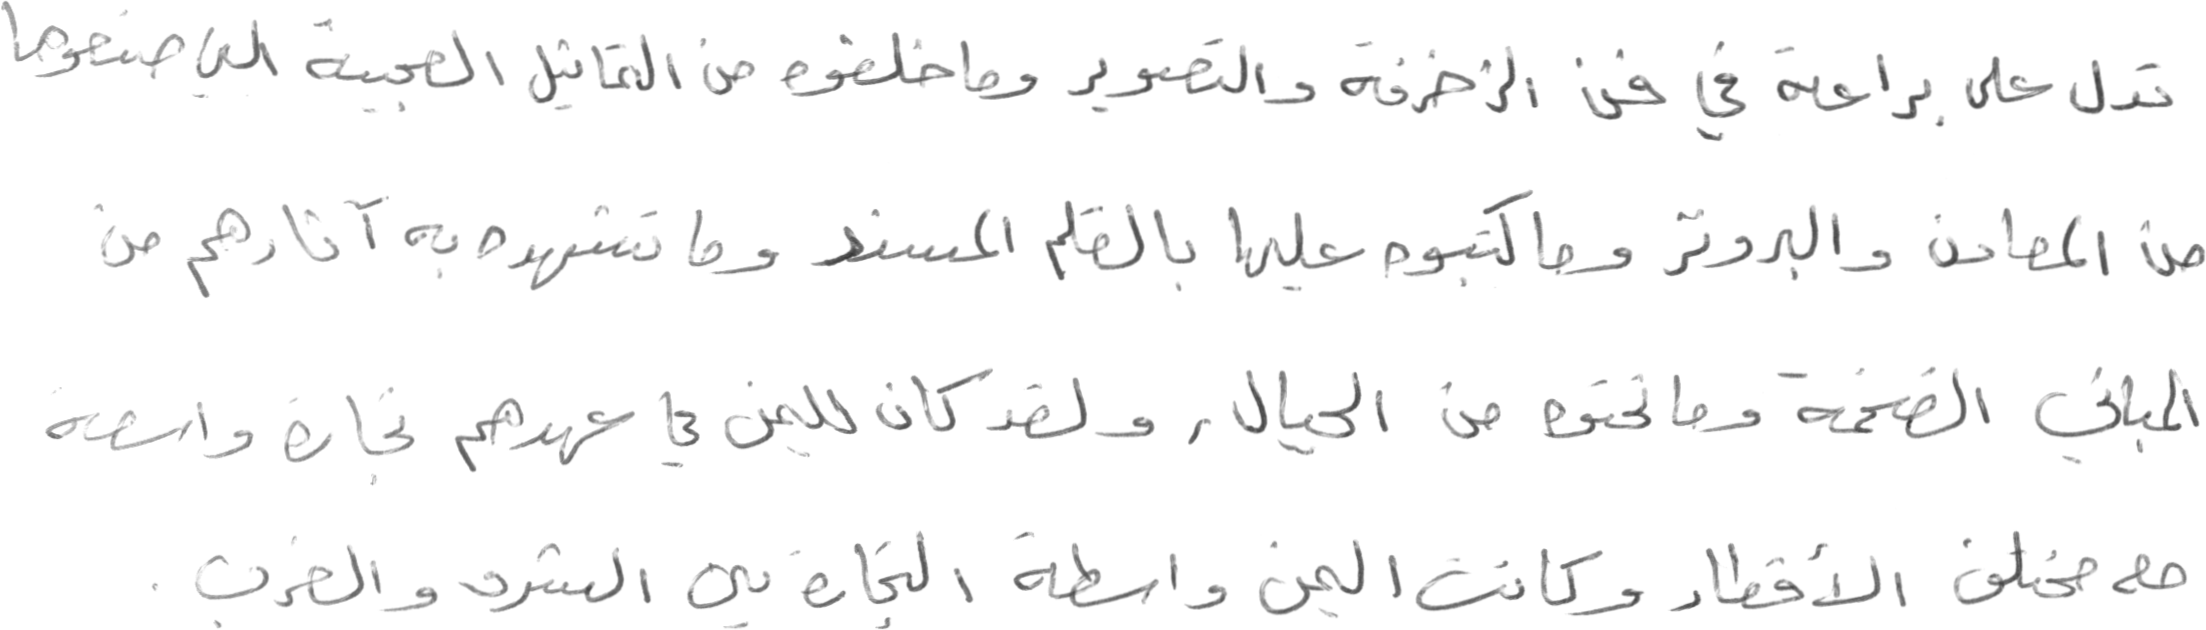 تدل على براعة في فن الزخرفة والتصوير وما خلفوه من التماثيل العجيبة التي صنعوها
من المعادن والبرونز وما كتبوه عليها بالقلم المسند وما تشهد به آثارهم من
المباني الضخمة وما نحتوه من الجبال، ولقد كان لليمن في عهدهم تجارة واسعة
مع مختلف الأقطار وكانت اليمن واسطة التجارة بين الشرق والغرب .